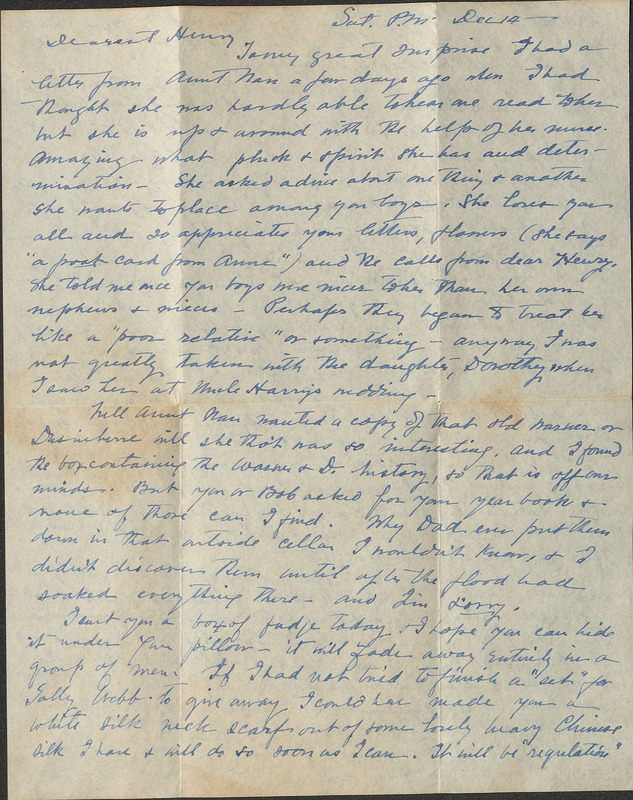 Sat. P.M. Dec 14 —
Dearest Henry
To my great surprise I had a
letter from Aunt Nan a few days ago when I had
thought she was hardly able to hear me read to her
but she is up & around with the help of her nurse.
Amazing what pluck & spirit she has and deter-
mination — She asked advice about one thing & another
she wants to place among you boys. She loves you
all and so appreciates your letters, flowers (she says
"a post card from Anne") and the calls from dear Henry.
She told me once you boys were nicer to her than her own
nephews & nieces — Perhaps they began to treat her
like a "poor relative" or something — anyway I was
not greatly taken with the daughter, Dorothy, when
I saw her at Uncle Harry's wedding —
Well Aunt Nan wanted a copy of that old Warner or
will she tho't was so interesting, and I found
the box containing the & D. history, so that is off our
minds. But you or Bob asked for your year book &
none of those can I find. Why Dad ever put them
down in that outside cellar I wouldn't know, & I
didn't discover them until after the flood had
soaked everything there — and I'm sorry.
I sent you a box of fudge today & I hope you can hide
it under your pillow — it will fade away entirely in a
group of men. If I had not tried to finish a "set" for
Sally Webb to give away I could have made you a
white silk neck scarf out of some lovely heavy Chinese
silk I have & will do so soon as I can. It will be "regulation"